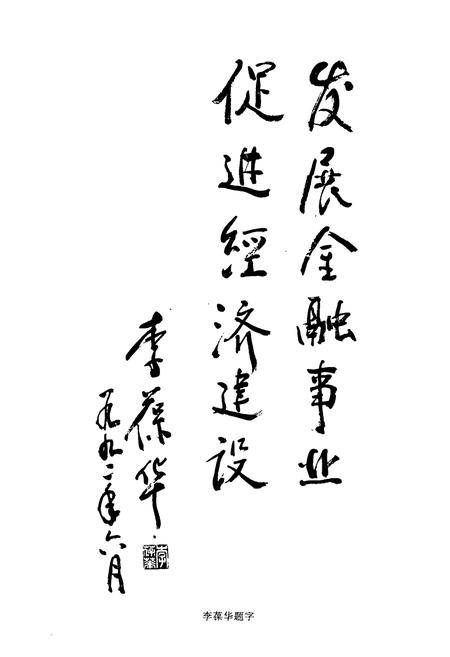 发展金融事业
促进經济建设
李葆华
一九九二年六月
李葆华题字